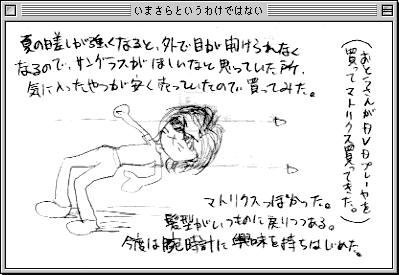 いまさらというわけではない
夏の日差しが強くなると、外で目が開けられなく
なるので、サングラスがほしいなと思っていた所、
気に入ったやつが安く売っていたので買ってみた。
(おとうさんがDVDプレーヤを
買ってマトリクス買ってきた。)
マトリクスっぽかった。
髪型がいつものに戻りつつある。
今度は腕時計に興味を持ちはじめた。